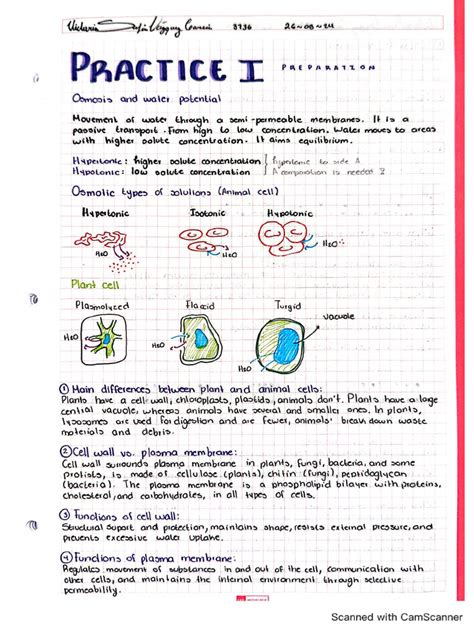 3736 26-08-24
PRACTICE I PREPARATION
Osmosis and water potential
Movement of water through a semi-permeable membranes. It is a
passive transport. From high to low concentration. Water moves to areas
with higher solute concentration. It aims equilibrium.
Hypertonic: higher solute concentration } hypertonic to side A
Hypotonic: low solute concentration } A comparation is needed
Osmotic types of solutions (Animal cell)
Hypertonic Isotonic Hypotonic
H2O H2O H2O
Plant cell
Plasmolyzed Flaccid Turgid
vacuole
H2O H2O H2O
① Main differences between plant and animal cells:
Plants have a cell wall, chloroplasts, plastids, animals don't. Plants have a large
central vacuole, whereas animals have several and smaller ones. In plants,
lysosomes are used for digestion and are fewer, animals' break down waste
materials and debris.
② Cell wall vs. plasma membrane:
Cell wall surrounds plasma membrane in plants, fungi, bacteria, and some
protists, is made of cellulose (plants), chitin (fungi), peptidoglycan
(bacteria). The plasma membrane is a phospholipid bilayer with proteins,
cholesterol, and carbohydrates, in all types of cells.
③ Functions of cell wall:
Structural suport and protection, maintains shape, resists external pressure, and
prevents excessive water uptake.
④ Functions of plasma membrane:
Regulates movement of substances in and out of the cell, communication with
other cells, and maintains the internal environment through selective
permeability.
Scanned with CamScanner